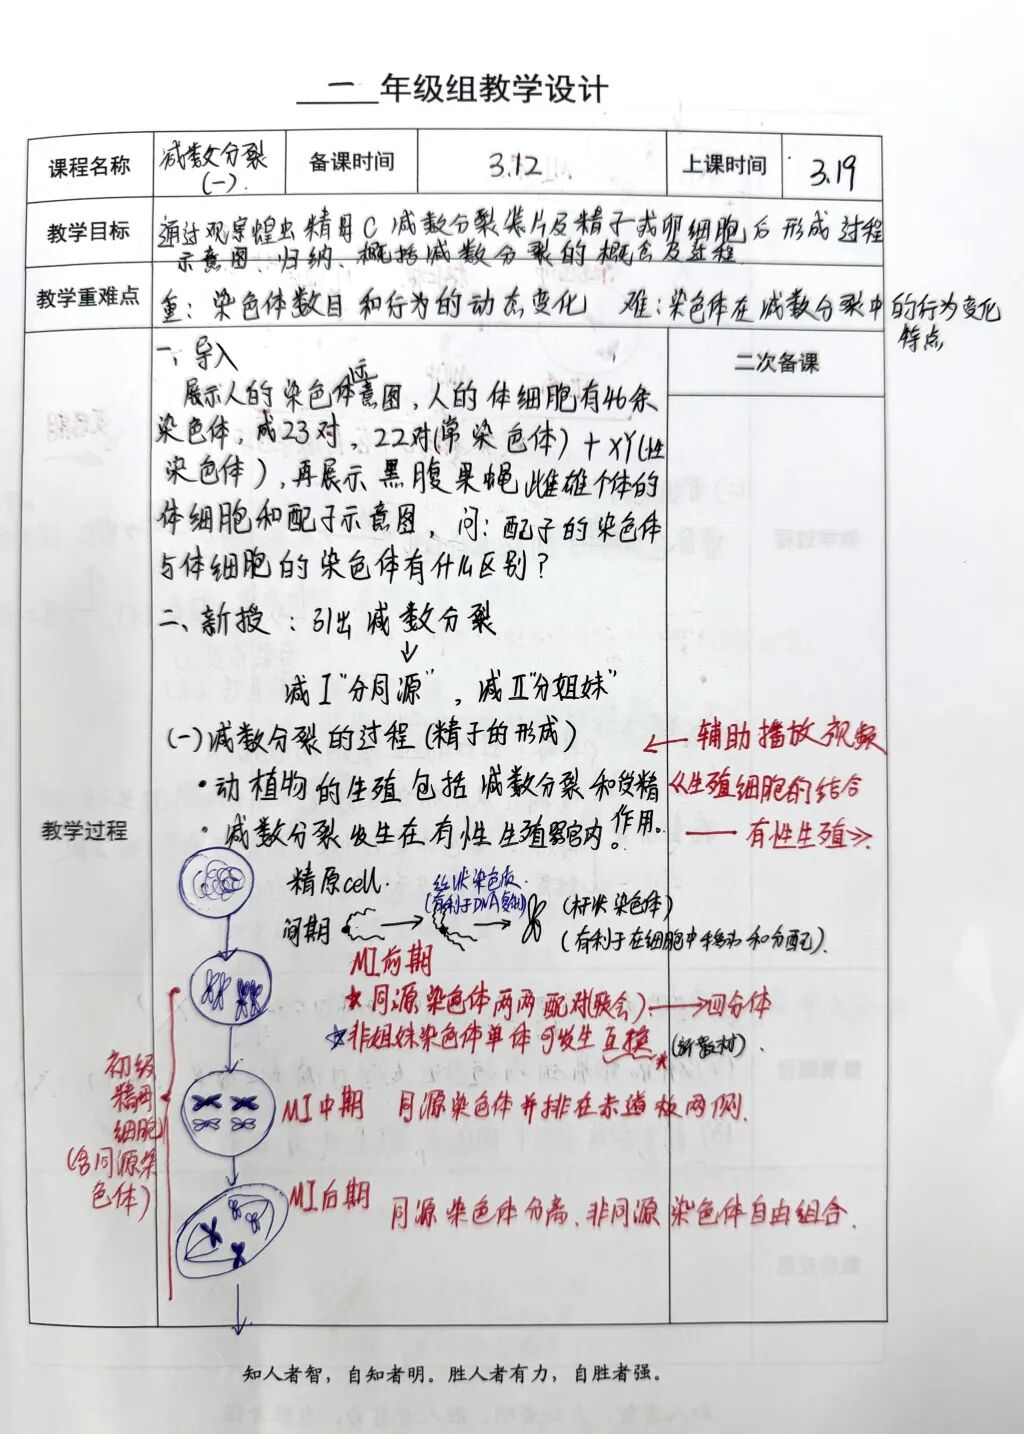 一 年级组教学设计
课程名称 减数分裂(一). 备课时间 3.12 上课时间 3.19
教学目标 通过观察蝗虫精母C减数分裂装片及精子或卵细胞的形成过程
示意图、归纳、概括减数分裂的概念及过程.
教学重难点 重：染色体数目和行为的动态变化 难：染色体在减数分裂中的行为变化
特点
一、导入
二次备课
展示人的染色体示意图，人的体细胞有46条
染色体，成23对，22对(常染色体)＋XY(性
染色体)，再展示黑腹果蝇雌雄个体的
体细胞和配子示意图，问：配子的染色体
与体细胞的染色体有什么区别？
二、新授：引出减数分裂
↓
减Ⅰ“分同源”，减Ⅱ“分姐妹”
(一)减数分裂的过程(精子的形成)
← 辅助播放视频
·动植物的生殖包括减数分裂和受精作用。
《生殖细胞的结合
·减数分裂发生在有性生殖器官内。
—— 有性生殖》
教学过程
精原cell.
丝状染色质
(有利于DNA复制)
间期 → → (杆状染色体)
(有利于在细胞中移动和分配).
MI前期
★同源染色体两两配对(联会)→四分体
★非姐妹染色体单体可发生互换★(新教材).
初级
精母
细胞
(含同源染
色体)
MI中期 同源染色体并排在赤道板两侧.
MI后期
同源染色体分离、非同源染色体自由组合.
知人者智，自知者明。胜人者有力，自胜者强。